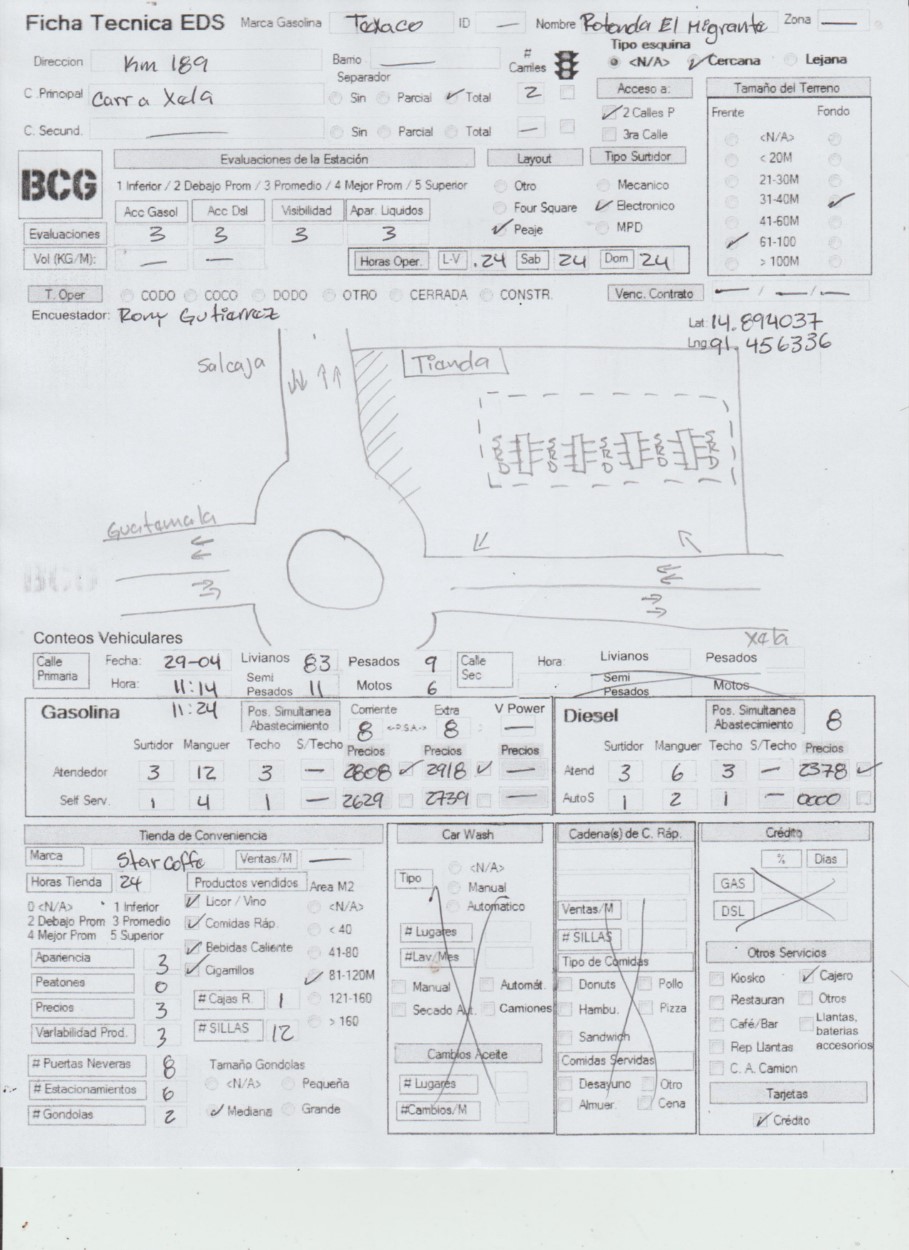 Ficha Tecnica EDS Marca Gasolina Texaco ID — Nombre Rotonda El Migrante Zona —
Direccion Km 189 Barrio — # Carriles Tipo esquina <N/A> Cercana Lejana
Separador
C .Principal Carr a Xela Sin Parcial Total 2 Acceso a: 2 Calles P Tamaño del Terreno
C. Secund. — Sin Parcial Total — 3ra Calle Frente Fondo
<N/A>
< 20M
21-30M
31-40M
41-60M
61-100
> 100M
BCG
Evaluaciones de la Estación Layout Tipo Surtidor
1 Inferior / 2 Debajo Prom / 3 Promedio / 4 Mejor Prom / 5 Superior Otro Mecanico
Acc Gasol Acc Dsl Visibilidad Apar. Liquidos Four Square Electronico
Evaluaciones 3 3 3 3 Peaje MPD
Vol (KG/M): — — Horas Oper. L-V .24 Sab 24 Dom 24
T. Oper CODO COCO DODO OTRO CERRADA CONSTR. Venc. Contrato — / — / —
Encuestador: Rony Gutierrez
Lat 14.894037
Lng 91.456336
Salcaja
Tienda
S R D S R D S R D S R D S R D
Guatemala
BCG
Xela
Conteos Vehiculares
Calle Primaria Fecha: 29-04 Livianos 83 Pesados 9 Calle Sec Hora: Livianos Pesados
Hora: 11:14 Semi Pesados 11 Motos 6 Semi Pesados Motos
11:24
Gasolina Pos. Simultanea Abastecimiento Corriente 8 <-D.S.A-> Extra 8 V Power —
Surtidor Manguer Techo S/Techo Precios Precios Precios
Atendedor 3 12 3 — 2808 2918 —
Self Serv. 1 4 1 — 2629 2739 —
Diesel Pos. Simultanea Abastecimiento 8
Surtidor Manguer Techo S/Techo Precios
Atend 3 6 3 — 2378
Auto S 1 2 1 — 0000
Tienda de Conveniencia
Marca Star Coffe Ventas/M —
Horas Tienda 24 Productos vendidos Area M2
0 <N/A> 1 Inferior
2 Debajo Prom 3 Promedio
4 Mejor Prom 5 Superior
Licor / Vino
Comidas Ráp.
Bebidas Caliente
Cigarrilos
<N/A>
< 40
41-80
81-120M
121-160
> 160
Apariencia 3
Peatones 0
Precios 3
Variabilidad Prod. 3
# Cajas R. 1
# SILLAS 12
# Puertas Neveras 8
# Estacionamientos 6
# Gondolas 2
Tamaño Gondolas
<N/A> Pequeña
Mediana Grande
Car Wash
Tipo <N/A>
Manual
Automatico
# Lugares
#Lav/Mes
Manual Automát.
Secado Aut. Camiones
Cambios Aceite
# Lugares
#Cambios/M
Cadena(s) de C. Ráp.
Ventas/M
# SILLAS
Tipo de Comidas
Donuts Pollo
Hambu. Pizza
Sandwich
Comidas Servidas
Desayuno Otro
Almuer. Cena
Crédito
% Dias
GAS
DSL
Otros Servicios
Kiosko Cajero
Restauran Otros
Café/Bar Llantas, baterias accesorios
Rep Llantas
C. A. Camion
Tarjetas
Crédito